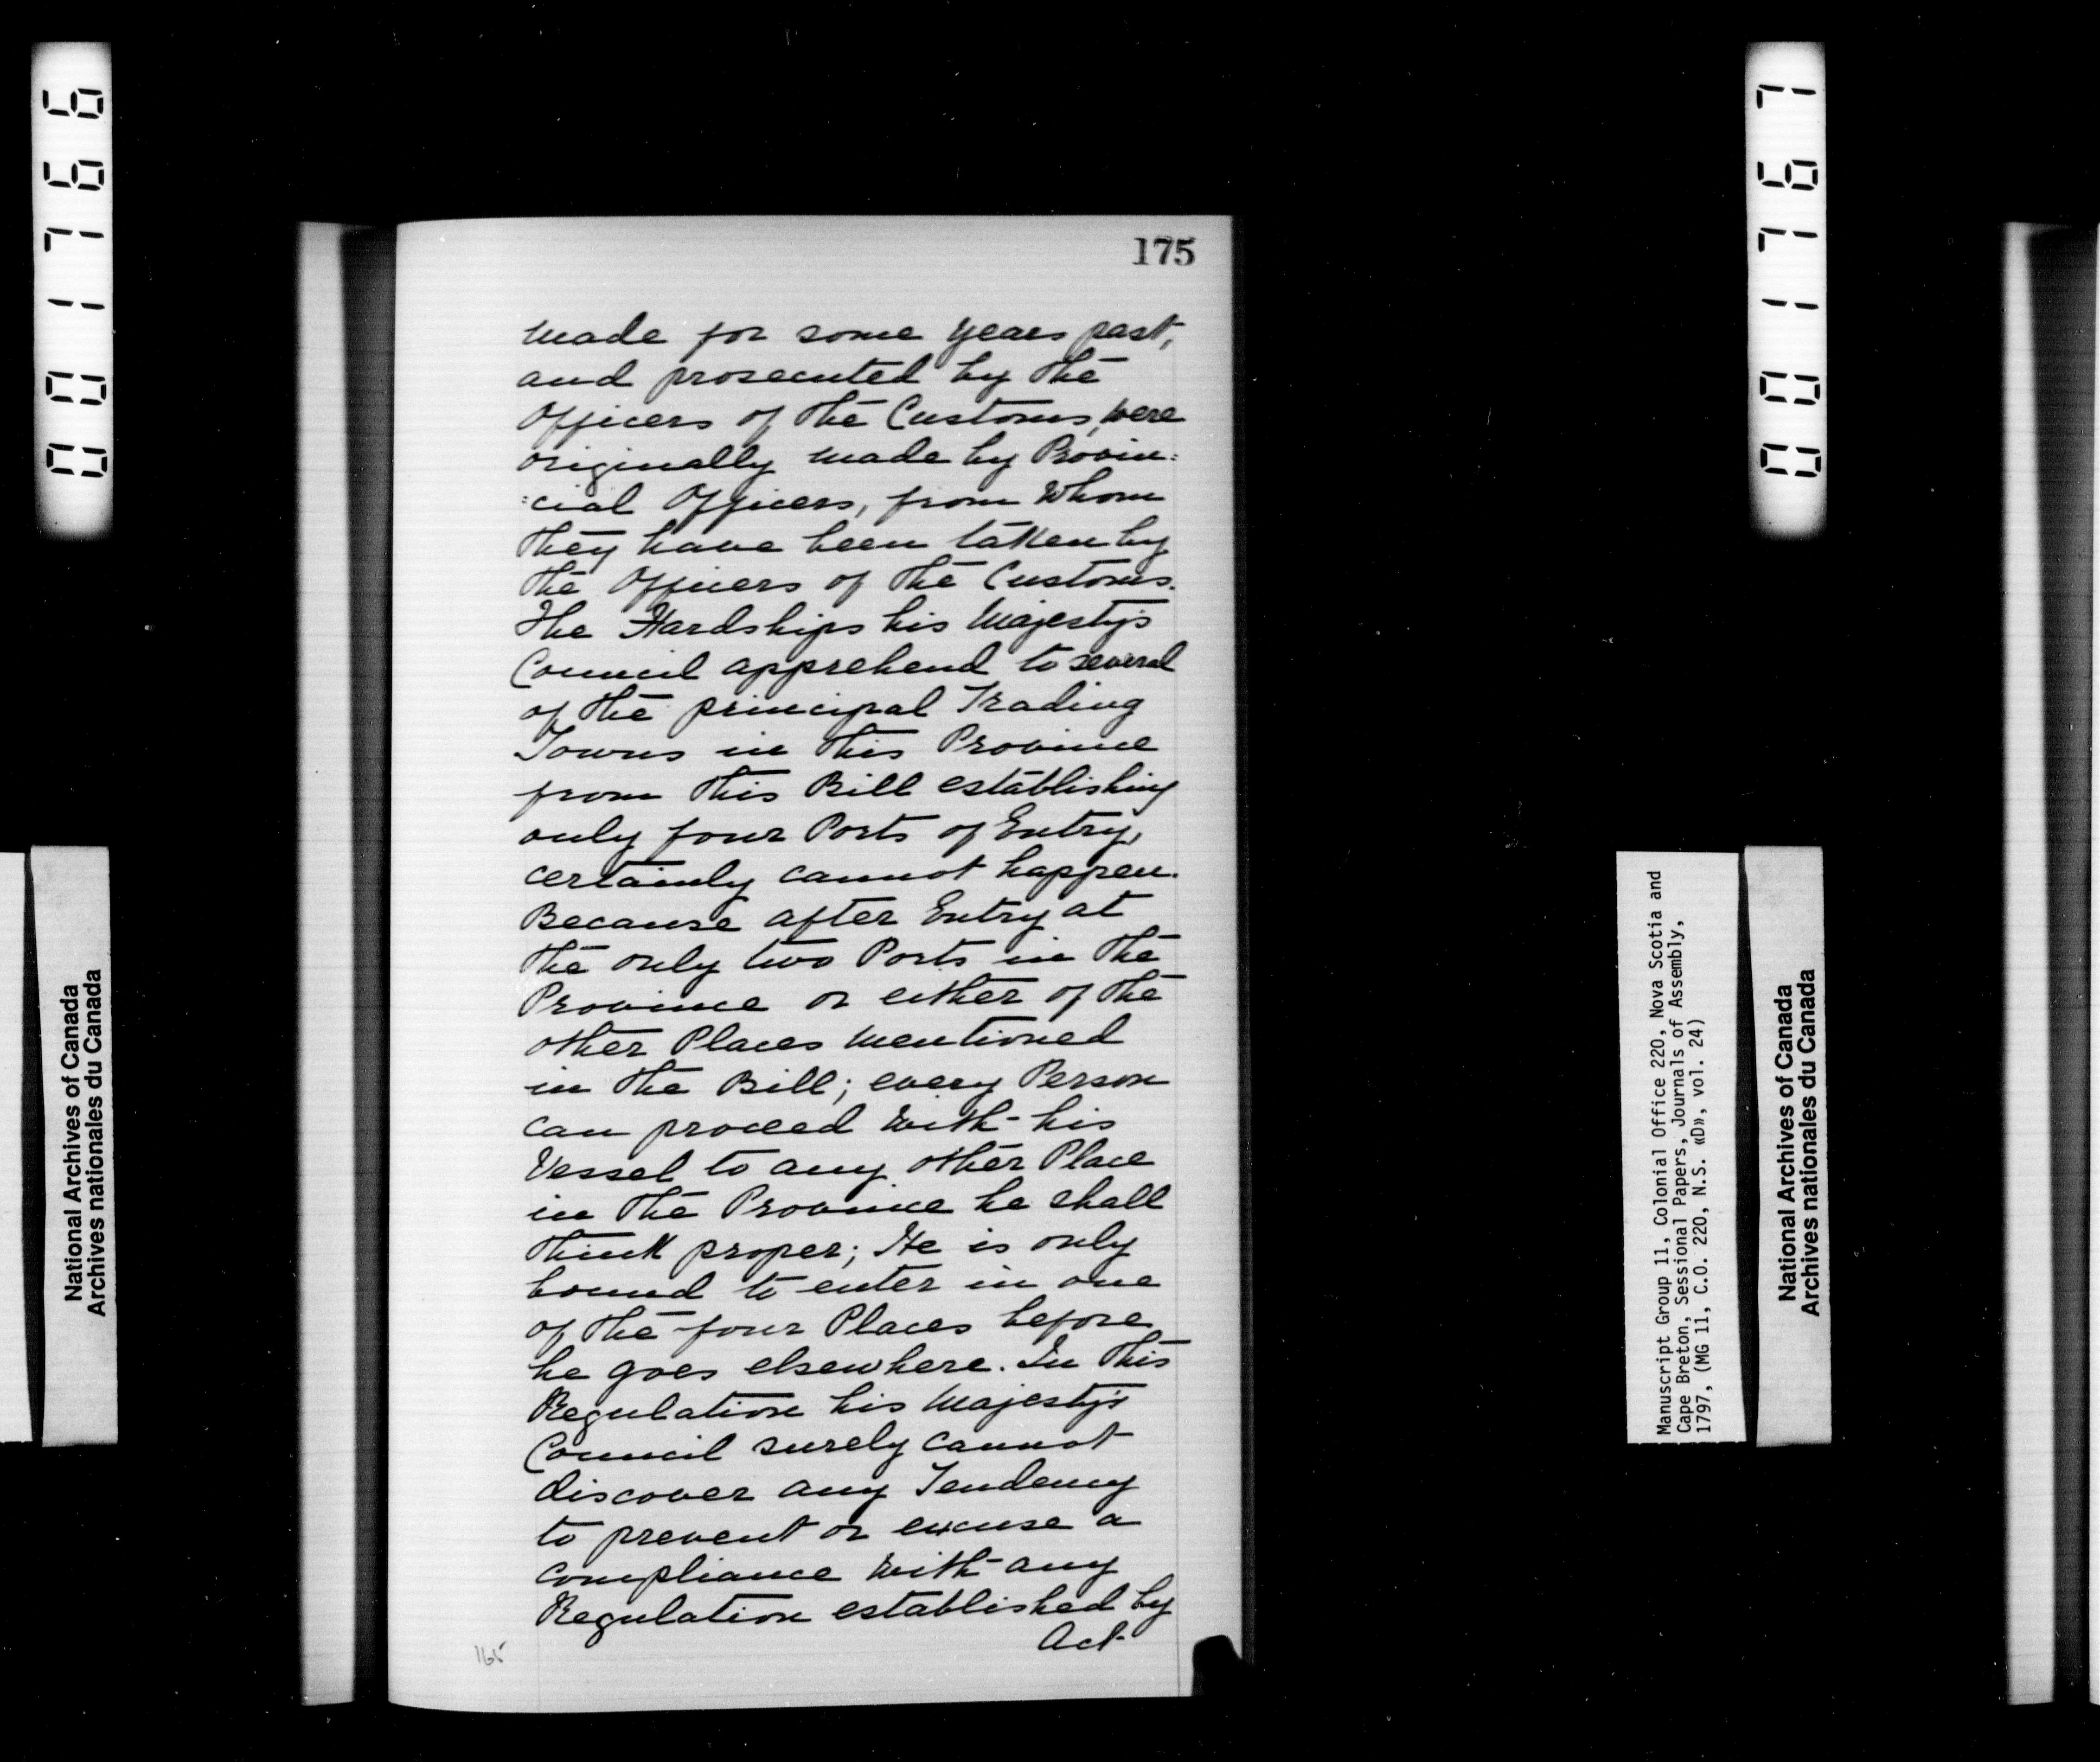 001766
National Archives of Canada
Archives nationales du Canada
175
made for some years past,
and prosecuted by the
Officers of the Customs, were
originally made by Provin:
:cial Officers, from whom
they have been taken by
the Officers of the Customs.
The Hardships his Majesty's
Council apprehend to several
of the principal Trading
Towns in this Province
from this Bill establishing
only four Ports of Entry,
certainly cannot happen.
Because after Entry at
the only two Ports in the
Province or either of the
other Places mentioned
in the Bill; every Person
can proceed with his
Vessel to any other Place
in the Province he shall
think proper; He is only
bound to enter in one
of the four Places before
he goes elsewhere. In this
Regulation his Majesty's
Council surely cannot
discover any Tendency
to prevent or excuse a
compliance with any
Regulation established by
Act
165
001767
Manuscript Group 11, Colonial Office 220, Nova Scotia and
Cape Breton, Sessional Papers, Journals of Assembly,
1797, (MG 11, C.O. 220, N.S. «D», vol. 24)
National Archives of Canada
Archives nationales du Canada